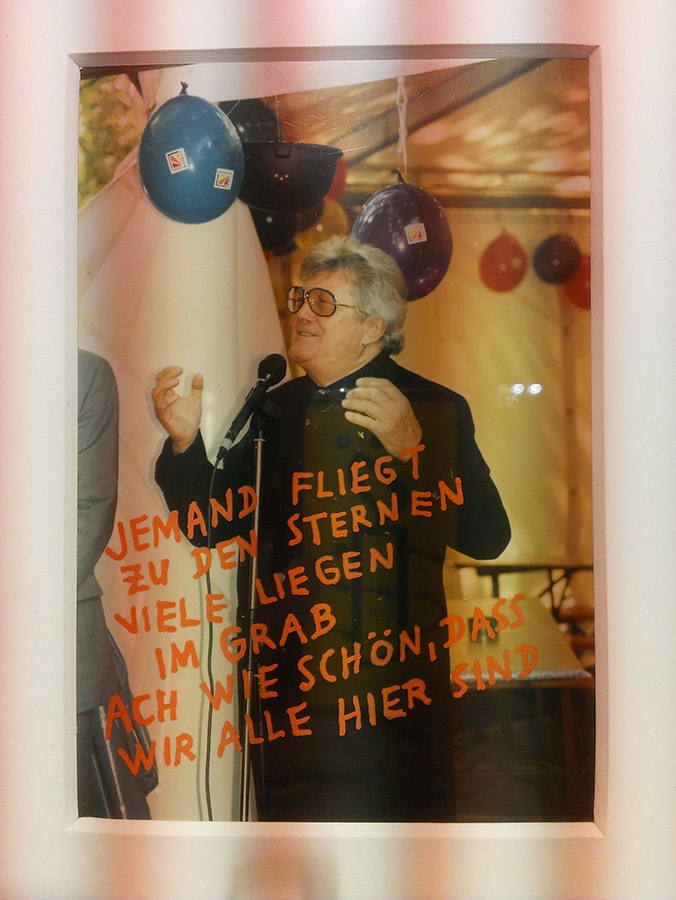 JEMAND FLIEGT
ZU DEN STERNEN
VIELE LIEGEN
IM GRAB
ACH WIE SCHÖN, DASS
WIR ALLE HIER SIND